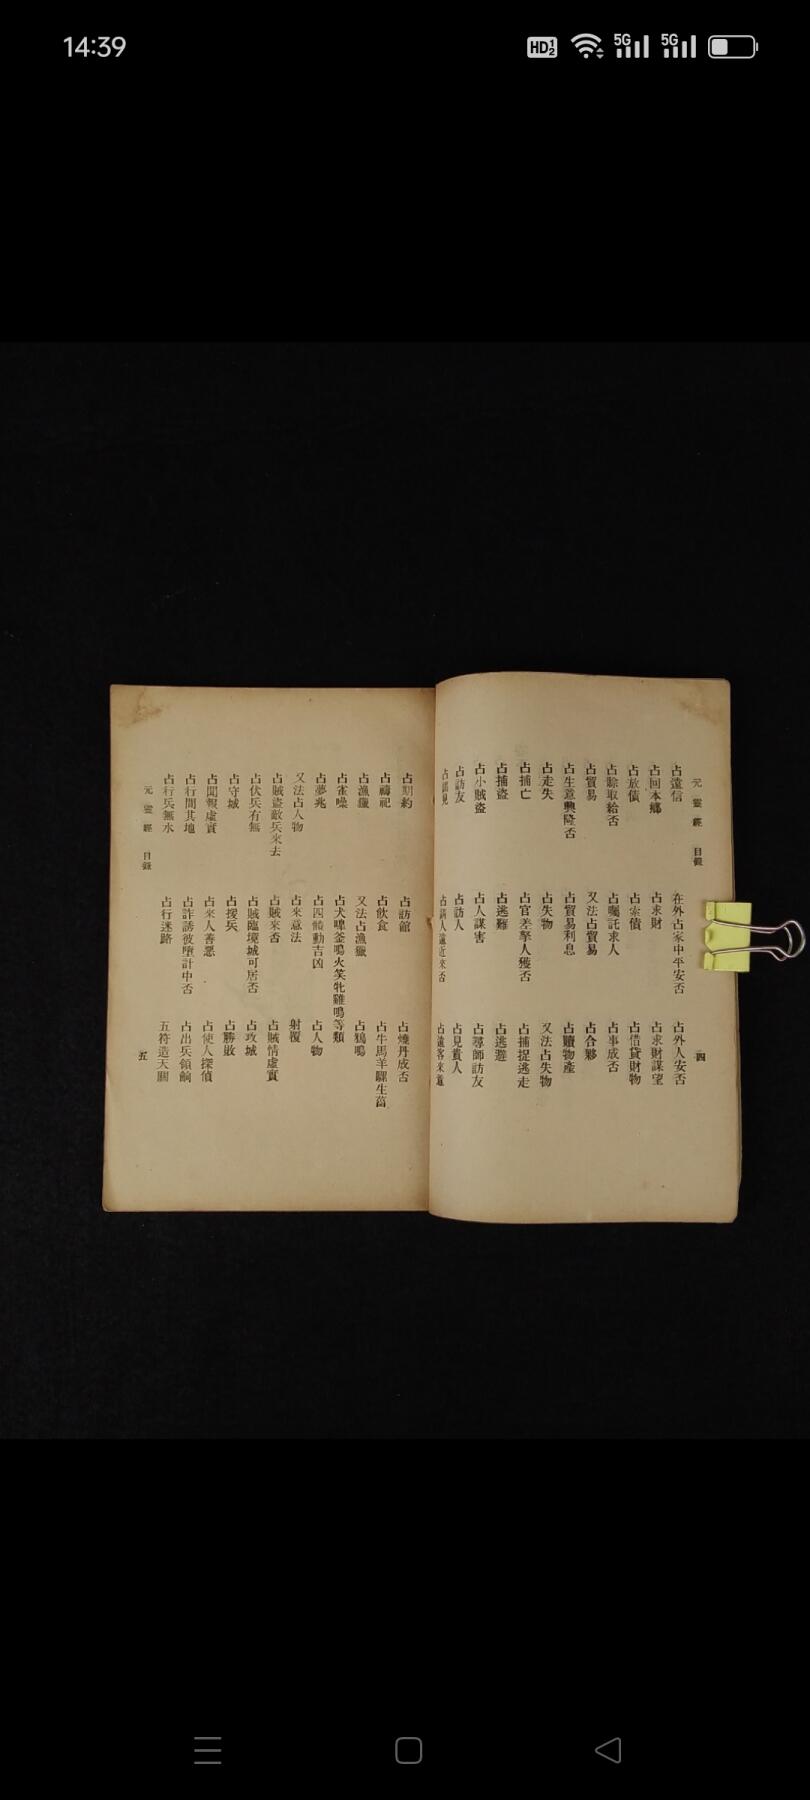 14:39
HD 1 2
5G
5G
元靈經 目錄 四
占遠信 在外占家中平安否 占外人安否
占回本鄉 占求財 占求財謀望
占放債 占索債 占借貸財物
占賒取給否 占囑託求人 占事成否
占貿易 又法占貿易 占合夥
占生意興隆否 占貿易利息 占贖物產
占走失 占失物 又法占失物
占捕亡 占官差拏人獲否 占捕捉逃走
占捕盜 占逃難 占逃避
占小賊盜 占人謀害 占尋師訪友
占訪友 占訪人 占見貴人
占謁見 占請人遠近來否 占遠客來意
占期約 占訪館 占燒丹成否
占禱祀 占飲食 占牛馬羊騾生
占漁獵 又法占漁獵 占鴉鳴
占雀噪 占犬嘷釜鳴火笑牝雞鳴等類
占夢兆 占四體動吉凶 占人物
又法占人物 占來意法 射覆
占賊盜敵兵來去 占賊來否 占賊情虛實
占伏兵有無 占賊臨境城可居否 占攻城
占守城 占援兵 占勝敗
占聞報虛實 占來人善惡 占使人探偵
占行間其地 占詐誘彼墮計中否 占出兵領餉
占行兵無水 占行迷路 五符造天關
元靈經 目錄 五